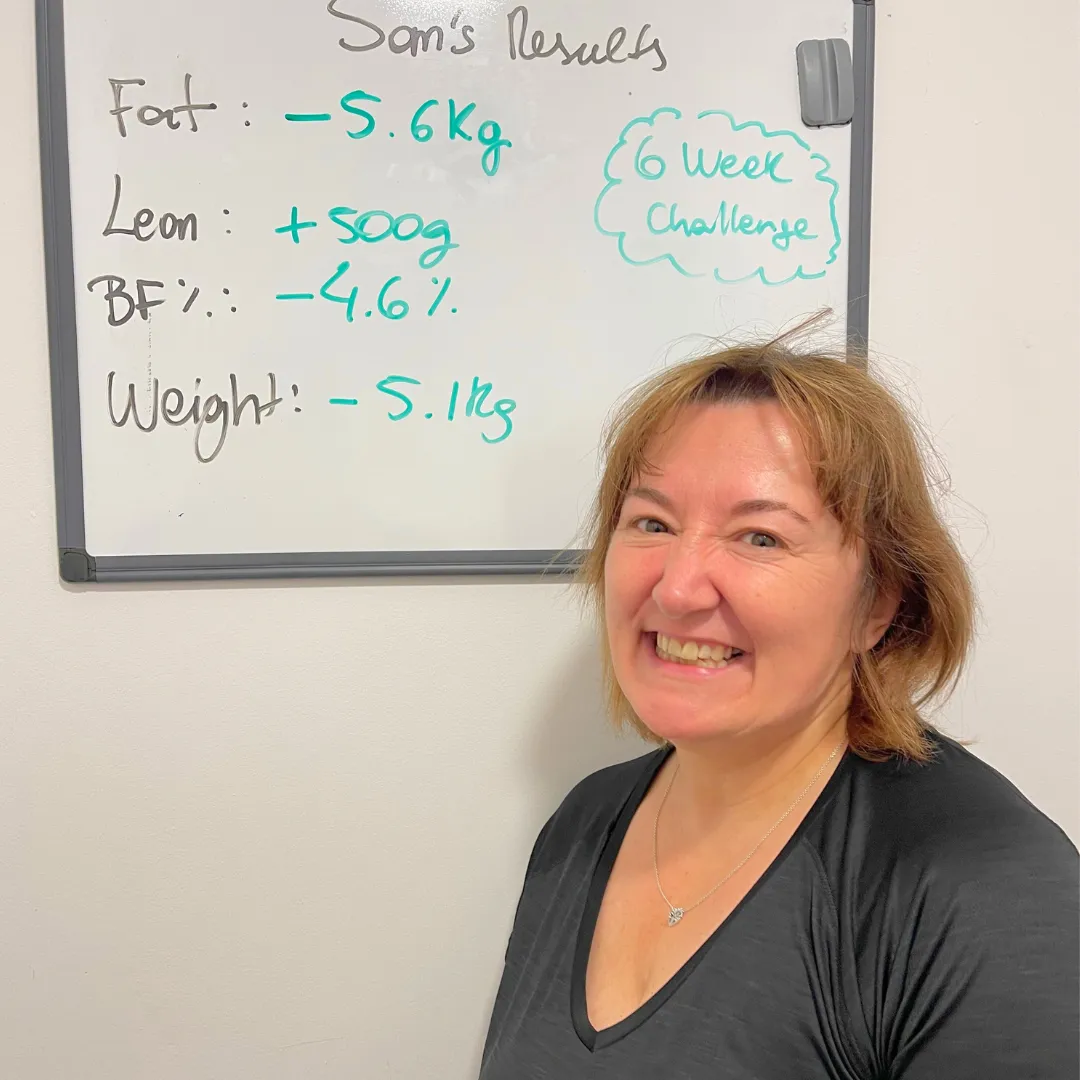 Sam's Results
Fat : -5.6Kg
Lean : +500g
BF%: -4.6%
Weight: -5.1Kg
6 Week
Challenge